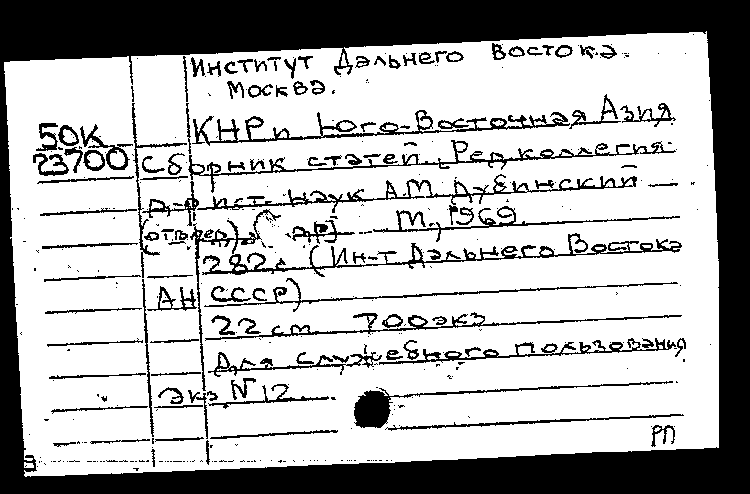 Институт Дальнего Востока.
Москва.
50К КНР и Юго-Восточная Азия
23700 Сборник статей. [Редколлегия:
д-р ист. наук А.М. Дубинский
(отв. ред.) и др.] М., 1969.
282 с. (Ин-т Дальнего Востока
АН СССР).
22 см. 700 экз.
Для служебного пользования
Экз. № 12.
РП